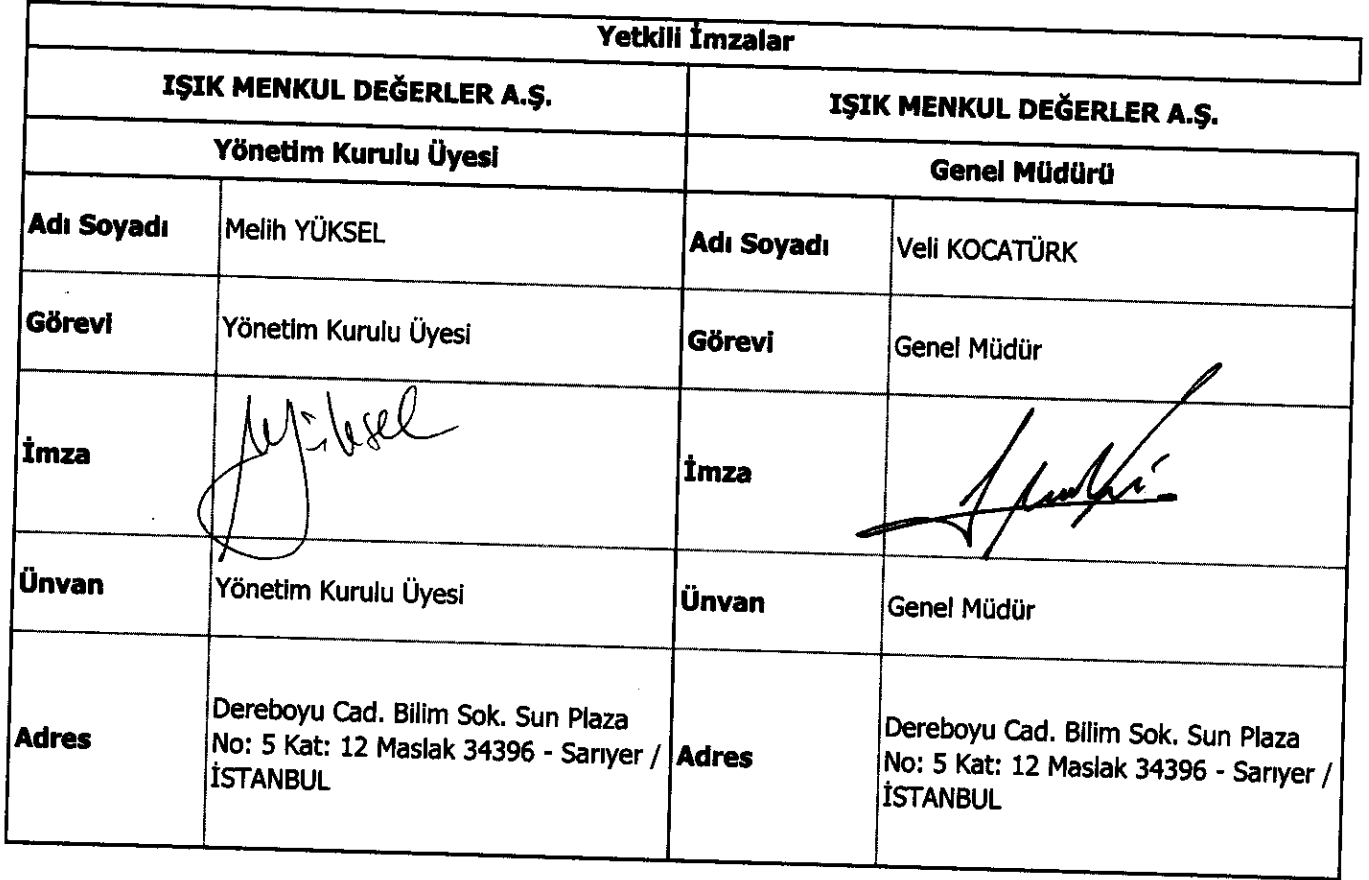 Yetkili İmzalar
IŞIK MENKUL DEĞERLER A.Ş.
IŞIK MENKUL DEĞERLER A.Ş.
Yönetim Kurulu Üyesi
Genel Müdürü
Adı Soyadı
Melih YÜKSEL
Adı Soyadı
Veli KOCATÜRK
Görevi
Yönetim Kurulu Üyesi
Görevi
Genel Müdür
İmza
MYüksel
İmza
Ünvan
Yönetim Kurulu Üyesi
Ünvan
Genel Müdür
Adres
Dereboyu Cad. Bilim Sok. Sun Plaza
No: 5 Kat: 12 Maslak 34396 - Sarıyer /
İSTANBUL
Adres
Dereboyu Cad. Bilim Sok. Sun Plaza
No: 5 Kat: 12 Maslak 34396 - Sarıyer /
İSTANBUL